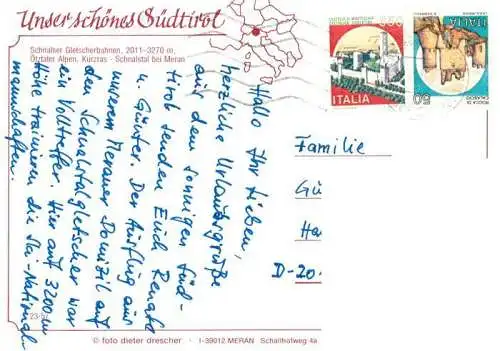 Unser schönes Südtirol
Schnalser Gletscherbahnen, 2011-3270 m,
Ötztaler Alpen, Kurzras - Schnalstal bei Meran
Hallo Ihr Lieben,
herzliche Urlaubsgrüße
aus dem sonnigen Süd-
tirol senden Euch Renate
u. Günter. Der Ausflug aus
unserem Meraner Domizil auf
den Schnalstalgletscher war
ein Volltreffer. Hier auf 3200 m
Höhe trainieren die Ski-National-
mannschaften.
ITALIA
ITALIA
ROCCA DI
CALASCIO
50
Familie
Gü
Ha
D-20
© foto dieter drescher · I-39012 MERAN Schallhofweg 4a